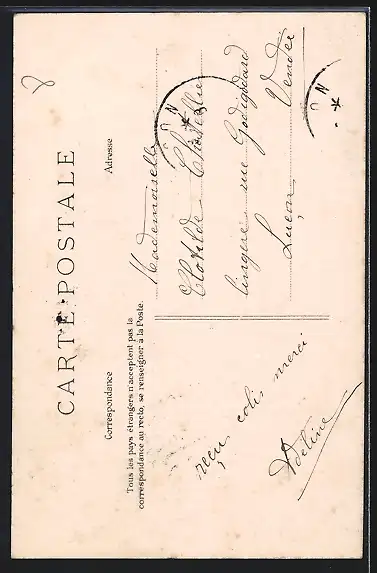 CARTE POSTALE
Correspondance
Adresse
Tous les pays étrangers n'acceptent pas la
correspondance au recto, se renseigner à la Poste.
reçu colis merci
Adeline
Mademoiselle
Clotilde
lingère rue
Luçon Vendée